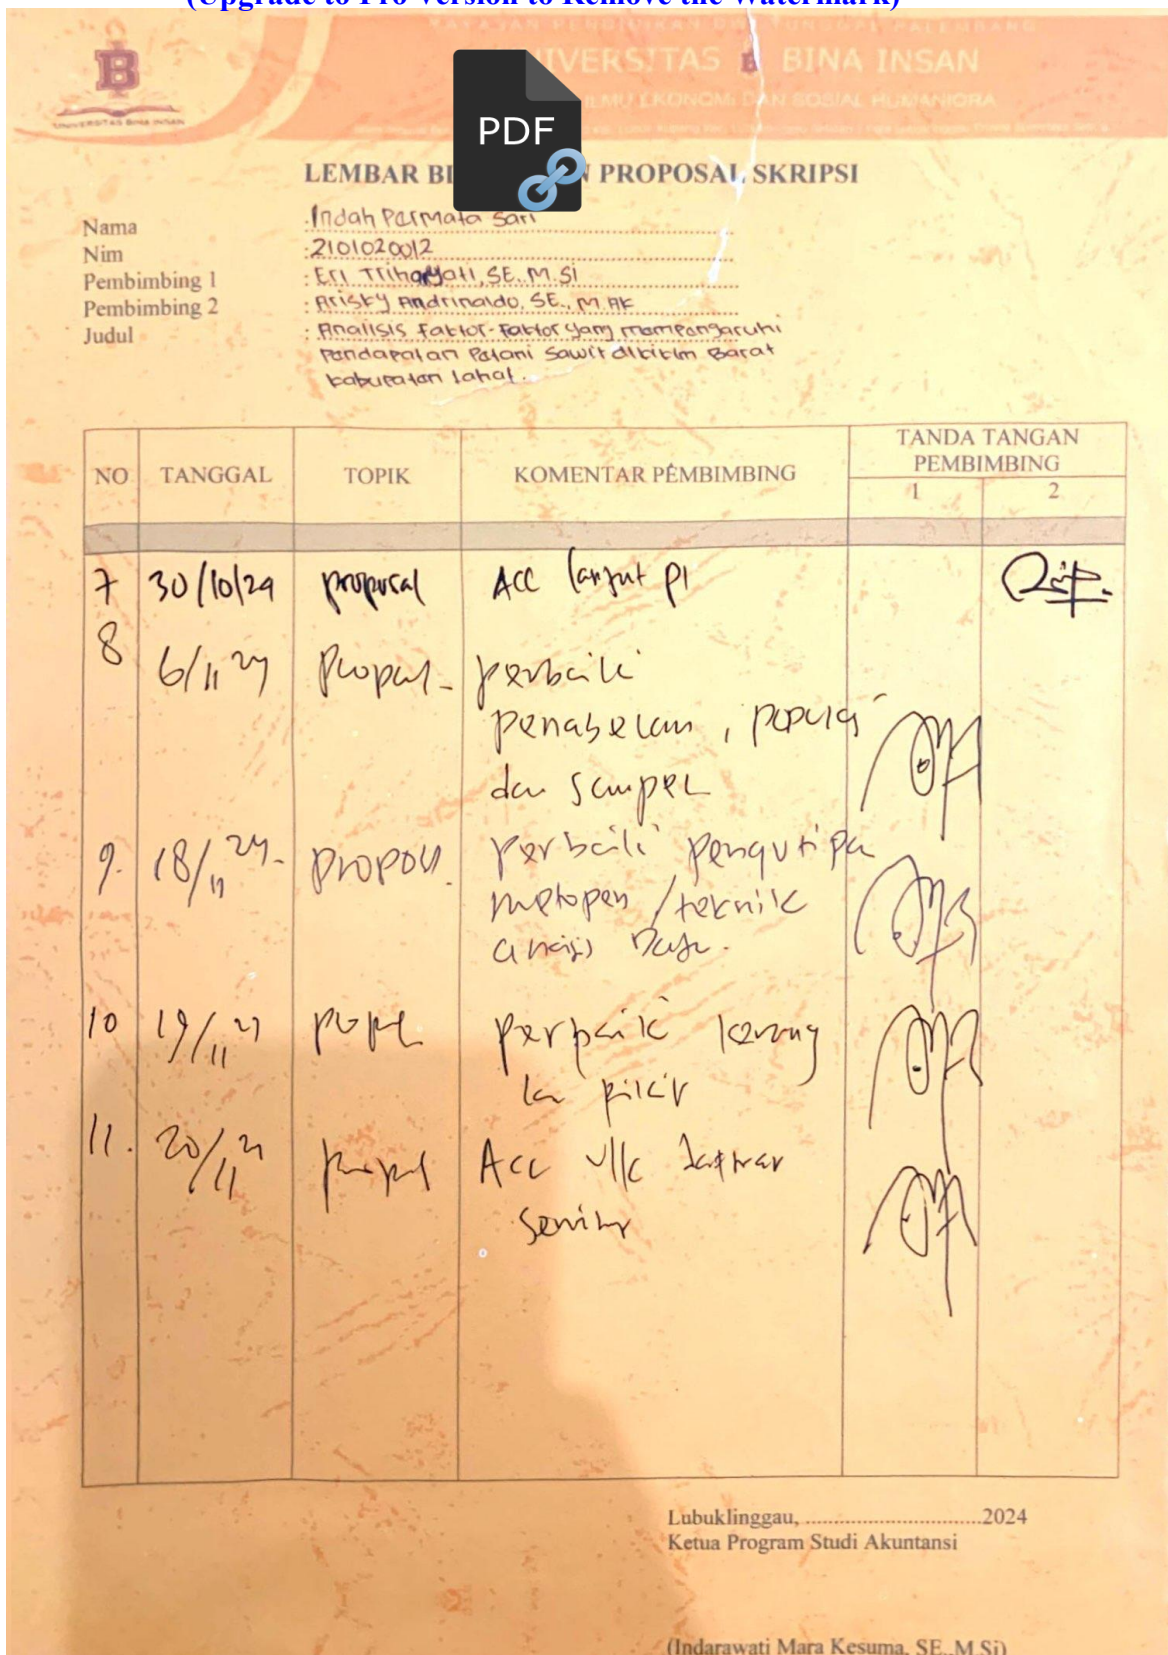 (Upgrade to Pro Version to Remove the Watermark)
UNIVERSITAS BINA INSAN
ILMU EKONOMI DAN SOSIAL HUMANIORA
UNIVERSITAS BINA INSAN
PDF
LEMBAR BI N PROPOSAL SKRIPSI
Nama : Indah Permata Sari
Nim : 2101020012
Pembimbing 1 : Eri Triharyati, SE., M.Si
Pembimbing 2 : Arisky Andrinaldo, SE., M.AK
Judul : Analisis Faktor-Faktor yang mempengaruhi
Pendapatan Petani Sawit dikikim Barat
kabupaten lahat.
NO TANGGAL TOPIK KOMENTAR PEMBIMBING TANDA TANGAN
PEMBIMBING
1 2
7 30/10/24 proposal Acc lanjut p1
8 6/11 24 perbaiki
penabelan, populasi
dan sampel
9. 18/11 24. propos. perbaiki pengutipa
metopen /teknik
analisis Data.
10 19/11 24 perbaiki kerang
ka pikir
11. 20/11 24 Acc u/k daftar
seminar
Lubuklinggau, ................................2024
Ketua Program Studi Akuntansi
(Indarawati Mara Kesuma, SE.,M.Si)